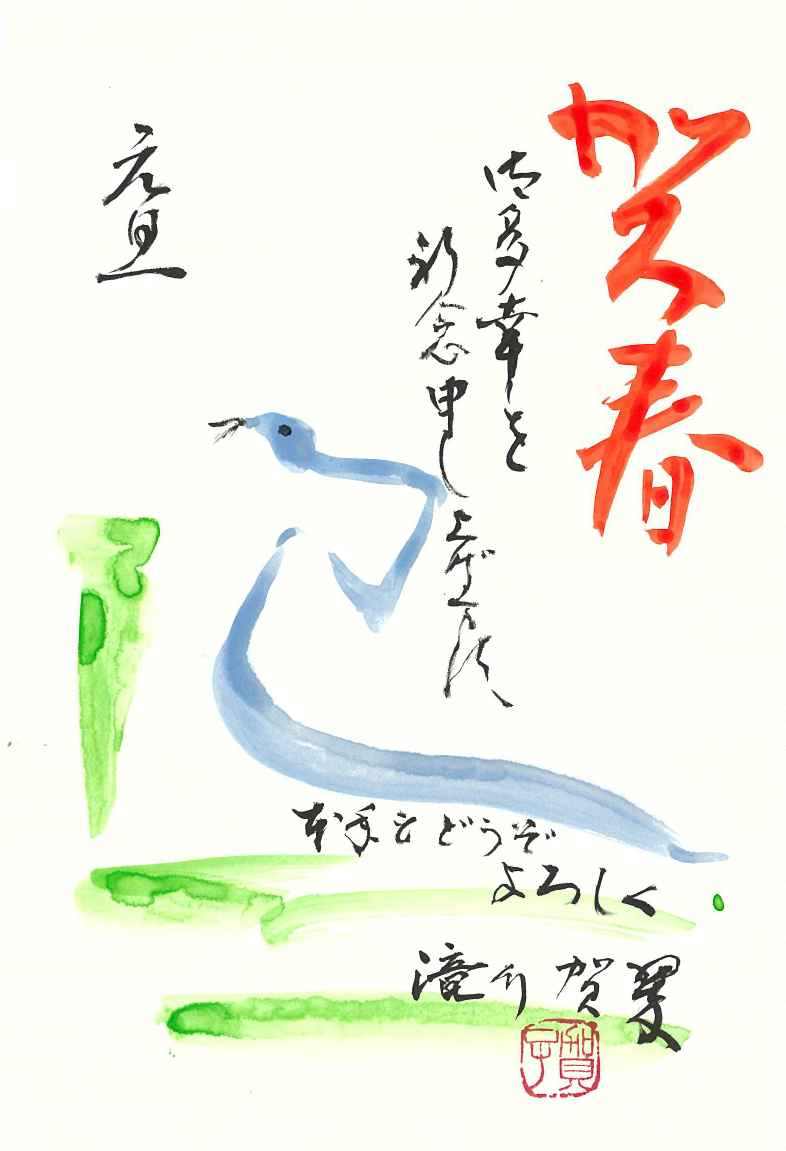 賀春
御多幸を
祈念申し上げます
元旦
本年もどうぞ
よろしく
滝 賀翠
賀